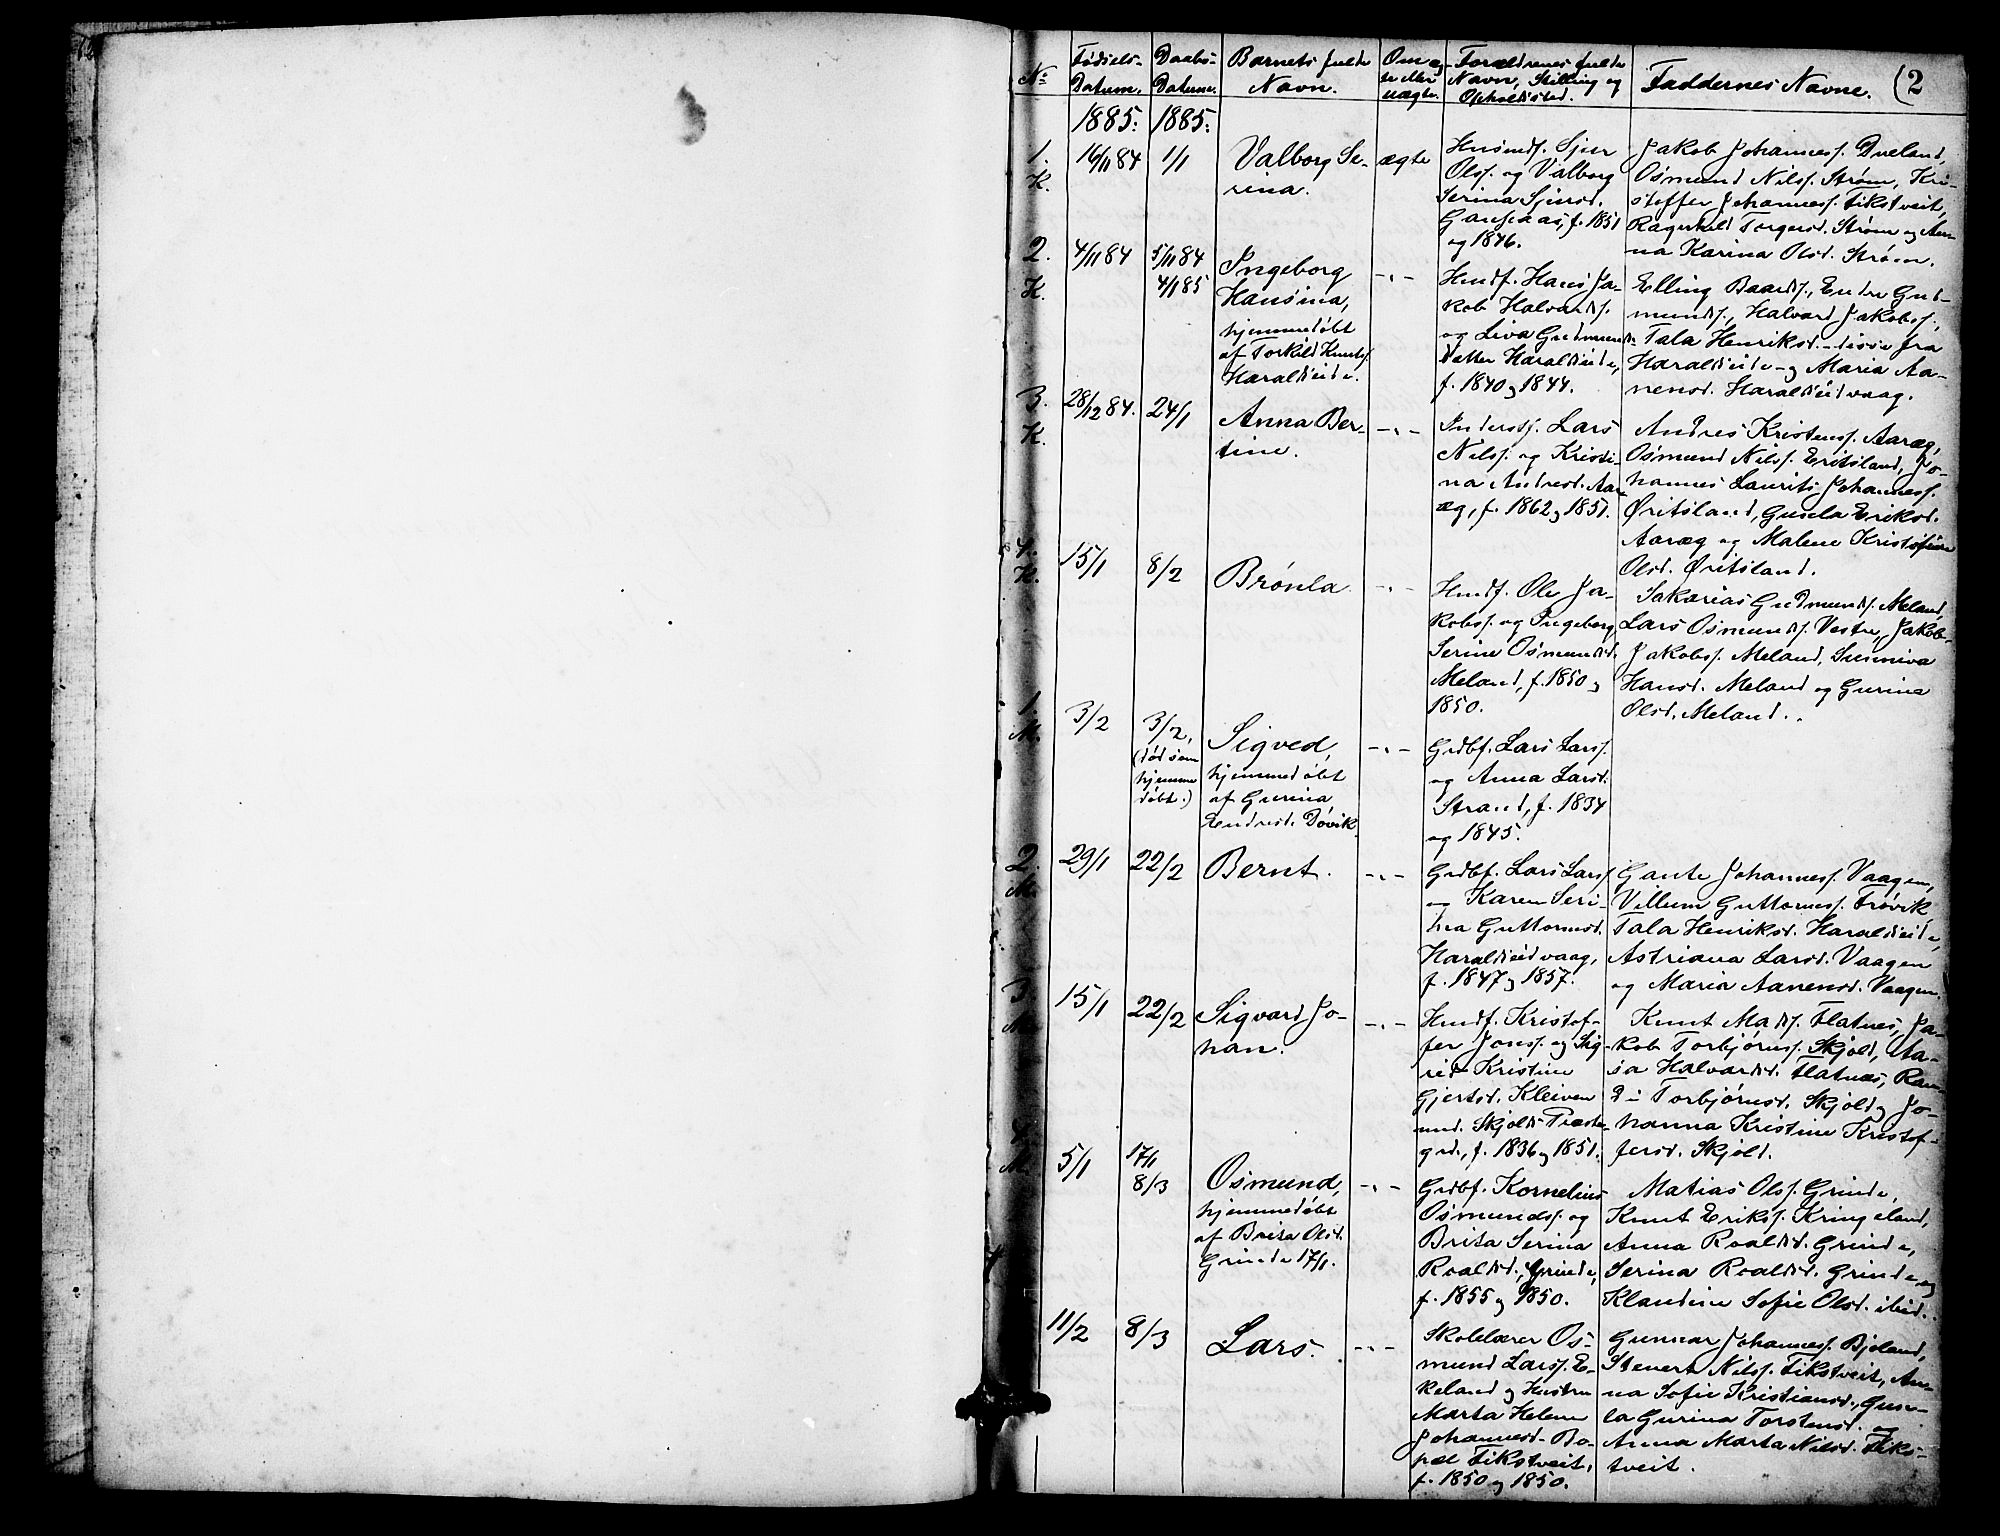 No
Fødsels-
Datum.
Daabs-
Datum.
Barnets fulde
Navn.
Om æg-
te eller
uægte.
Forældrenes fulde
Navn, Stilling og
Opholdssted.
Faddernes Navne.
(2
1885: 1885:
1.
K.
16/11 84
1/1
Valborg Se-
rina.
ægte
Husmdf. Sjur
Olsf. og Valborg
Serina Sjursd.
f. 1851
og 1846.
Jakob Johannesf. Dueland,
Osmund Nilsf. Strøm, Kri-
stoffer Johannesf. Tikstveit,
Ragnhild Torgersd. Strøm og An-
na Karina Olsd. Strøm.
2.
K.
4/11 84
5/11 84
4/1 85
Ingeborg
Hansina,
hjemmedøbt
af Torkild Knutsf.
Haraldseide.
-"-
Husmdf. Hans Ja-
kob Halvardsf.
og Liva Gudmunds-
datter Haraldseide,
f. 1840 og 1844.
Elling Baardsf., Endre Gud-
mundsf., Halvard Jakobsf.,
Tala Henriksd. - disse fra
Haraldseide - og Maria Aa-
nensd. Haraldseidvaag.
3.
K.
28/12 84.
24/1
Anna Ber-
tine.
-"-
Inderstf. Lars
Nilsf. og Kristi-
na Andresd. Aar-
æg, f. 1862 og 1851.
Andres Kristensf. Aaræg,
Osmund Nilsf. Eritsland, Jo-
hannes Laurits Johannesf.
Øritsland, Gunla Eriksd.
Aaræg og Malene Kristofine
Olsd. Øritsland.
4.
K.
15/1
8/2
Brønla
-"-
Husmdf. Ole Ja-
kobsf. og Ingeborg
Serine Osmundsd.
Meland, f. 1850 og
1850.
Sakarias Gudmundsf. Meland,
Lars Osmundsf. Vestre, Jakob
Jakobsf. Meland, Sunniva
Hansd. Meland og Gurine
Olsd. Meland.
1.
M.
3/2
3/2,
(død som
hjemme
døbt.)
Sigved,
hjemmedøbt
af Gurina
Endresd. Døvik
-"-
Grdbf. Lars Larsf.
og Anna Larsd.
Strand, f. 1834
og 1845.
2.
M.
29/1
22/2
Bernt.
-"-
Grdbf. Lars Larsf.
og Karen Seri-
na Guttormsd.
Haraldseidvaag,
f. 1847 og 1857.
Gante Johannesf. Vaagen,
Villum Guttormsf. Frøvik
Tala Henriksd. Haraldseide,
Astriana Larsd. Vaagen
og Maria Aanensd. Vaagen.
3.
M.
15/1
22/2
Sigvard Jo-
han.
-"-
Husmdf. Kristof-
fer Jonsf. og Sig-
rid Kristine
Gjertsd. Kleiven
und. Skjolds Præste-
grd., f. 1836 og 1851.
Knut Madsf. Flatnes, Ja-
kob Torbjørnsf. Skjold, Aa-
sa Halvardsd. Flatnæs, Ran-
di Torbjørnsd. Skjold og Jo-
hanna Kristine Kristof-
fersd. Skjold.
4.
M.
5/1
17/1
8/3
Osmund,
hjemmedøbt
af Brita Olsd.
Grinde 17/1.
-"-
Grdbf. Kornelius
Osmundsf. og
Brita Serina
Roaldsd., Grinde,
f. 1855 og 1850.
Matias Olsf. Grinde,
Knut Eriksf. Kringeland,
Anna Roaldsd. Grinde,
Serina Roaldsd. Grinde og
Klaudine Sofie Olsd. ibid.
11/2
8/3
Lars.
-"-
Skolelærer Os-
mund Larsf. E-
keland og Hustru
Marta Helene
Johannesd. Bo-
pæl Tikstveit,
f. 1850 og 1850.
Gunnar Johannesf. Bjoland,
Stenert Nilsf. Tikstveit, An-
na Sofie Kristiansd., Gun-
la Gurina Torstensd. og
Anna Marta Nilsd. Tiks-
tveit.